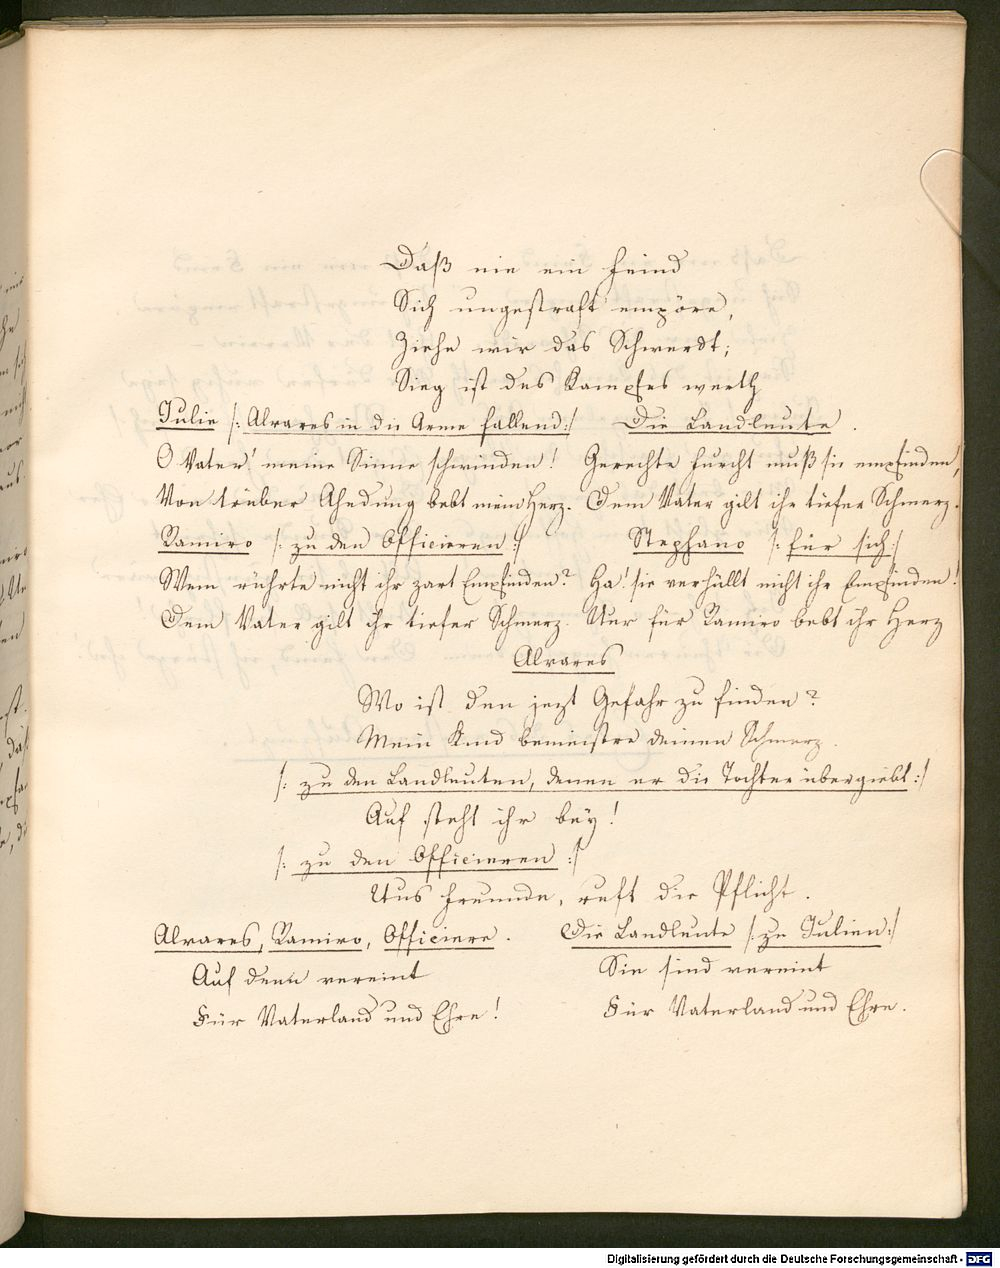 Daß nie ein Feind
Sich ungestraft empöre,
Ziehe wir das Schwerdt;
Sieg ist des Kampfes werth
Julie /: Alvares in die Arme fallend :/
O Vater! meine Sinne schwinden!
Von trüber Ahndung bebt mein Herz.
Die Landleute.
Gerechte Furcht muß sie empfinden,
Dem Vater gilt ihr tiefer Schmerz.
Ramiro /: zu den Officieren :/
Wem rührte nicht ihr zart Empfinden?
Dem Vater gilt ihr tiefer Schmerz.
Stephano /: für sich :/
Ha! sie verhüllt nicht ihr Empfinden!
Nur für Ramiro bebt ihr Herz
Alvares
Wo ist den jezt Gefahr zu finden?
Mein Kind bemeistre deinen Schmerz.
/: zu den Landleuten, denen er die Tochter übergiebt :/
Auf steht ihr bey!
/: zu den Officieren :/
Uns Freunde, ruft die Pflicht.
Alvares, Ramiro, Officiere.
Auf denn vereint
Für Vaterland und Ehre!
Die Landleute /: zu Julien :/
Sie sind vereint
Für Vaterland und Ehre.
Digitalisierung gefördert durch die Deutsche Forschungsgemeinschaft - DFG